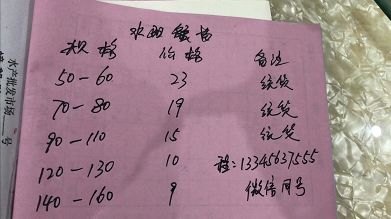 水产批发市场 号
规格 价格 备注
50-60 23 统货
70-80 19 统货
90-110 15 统货
120-130 10 13345637555
140-160 9 微信同号